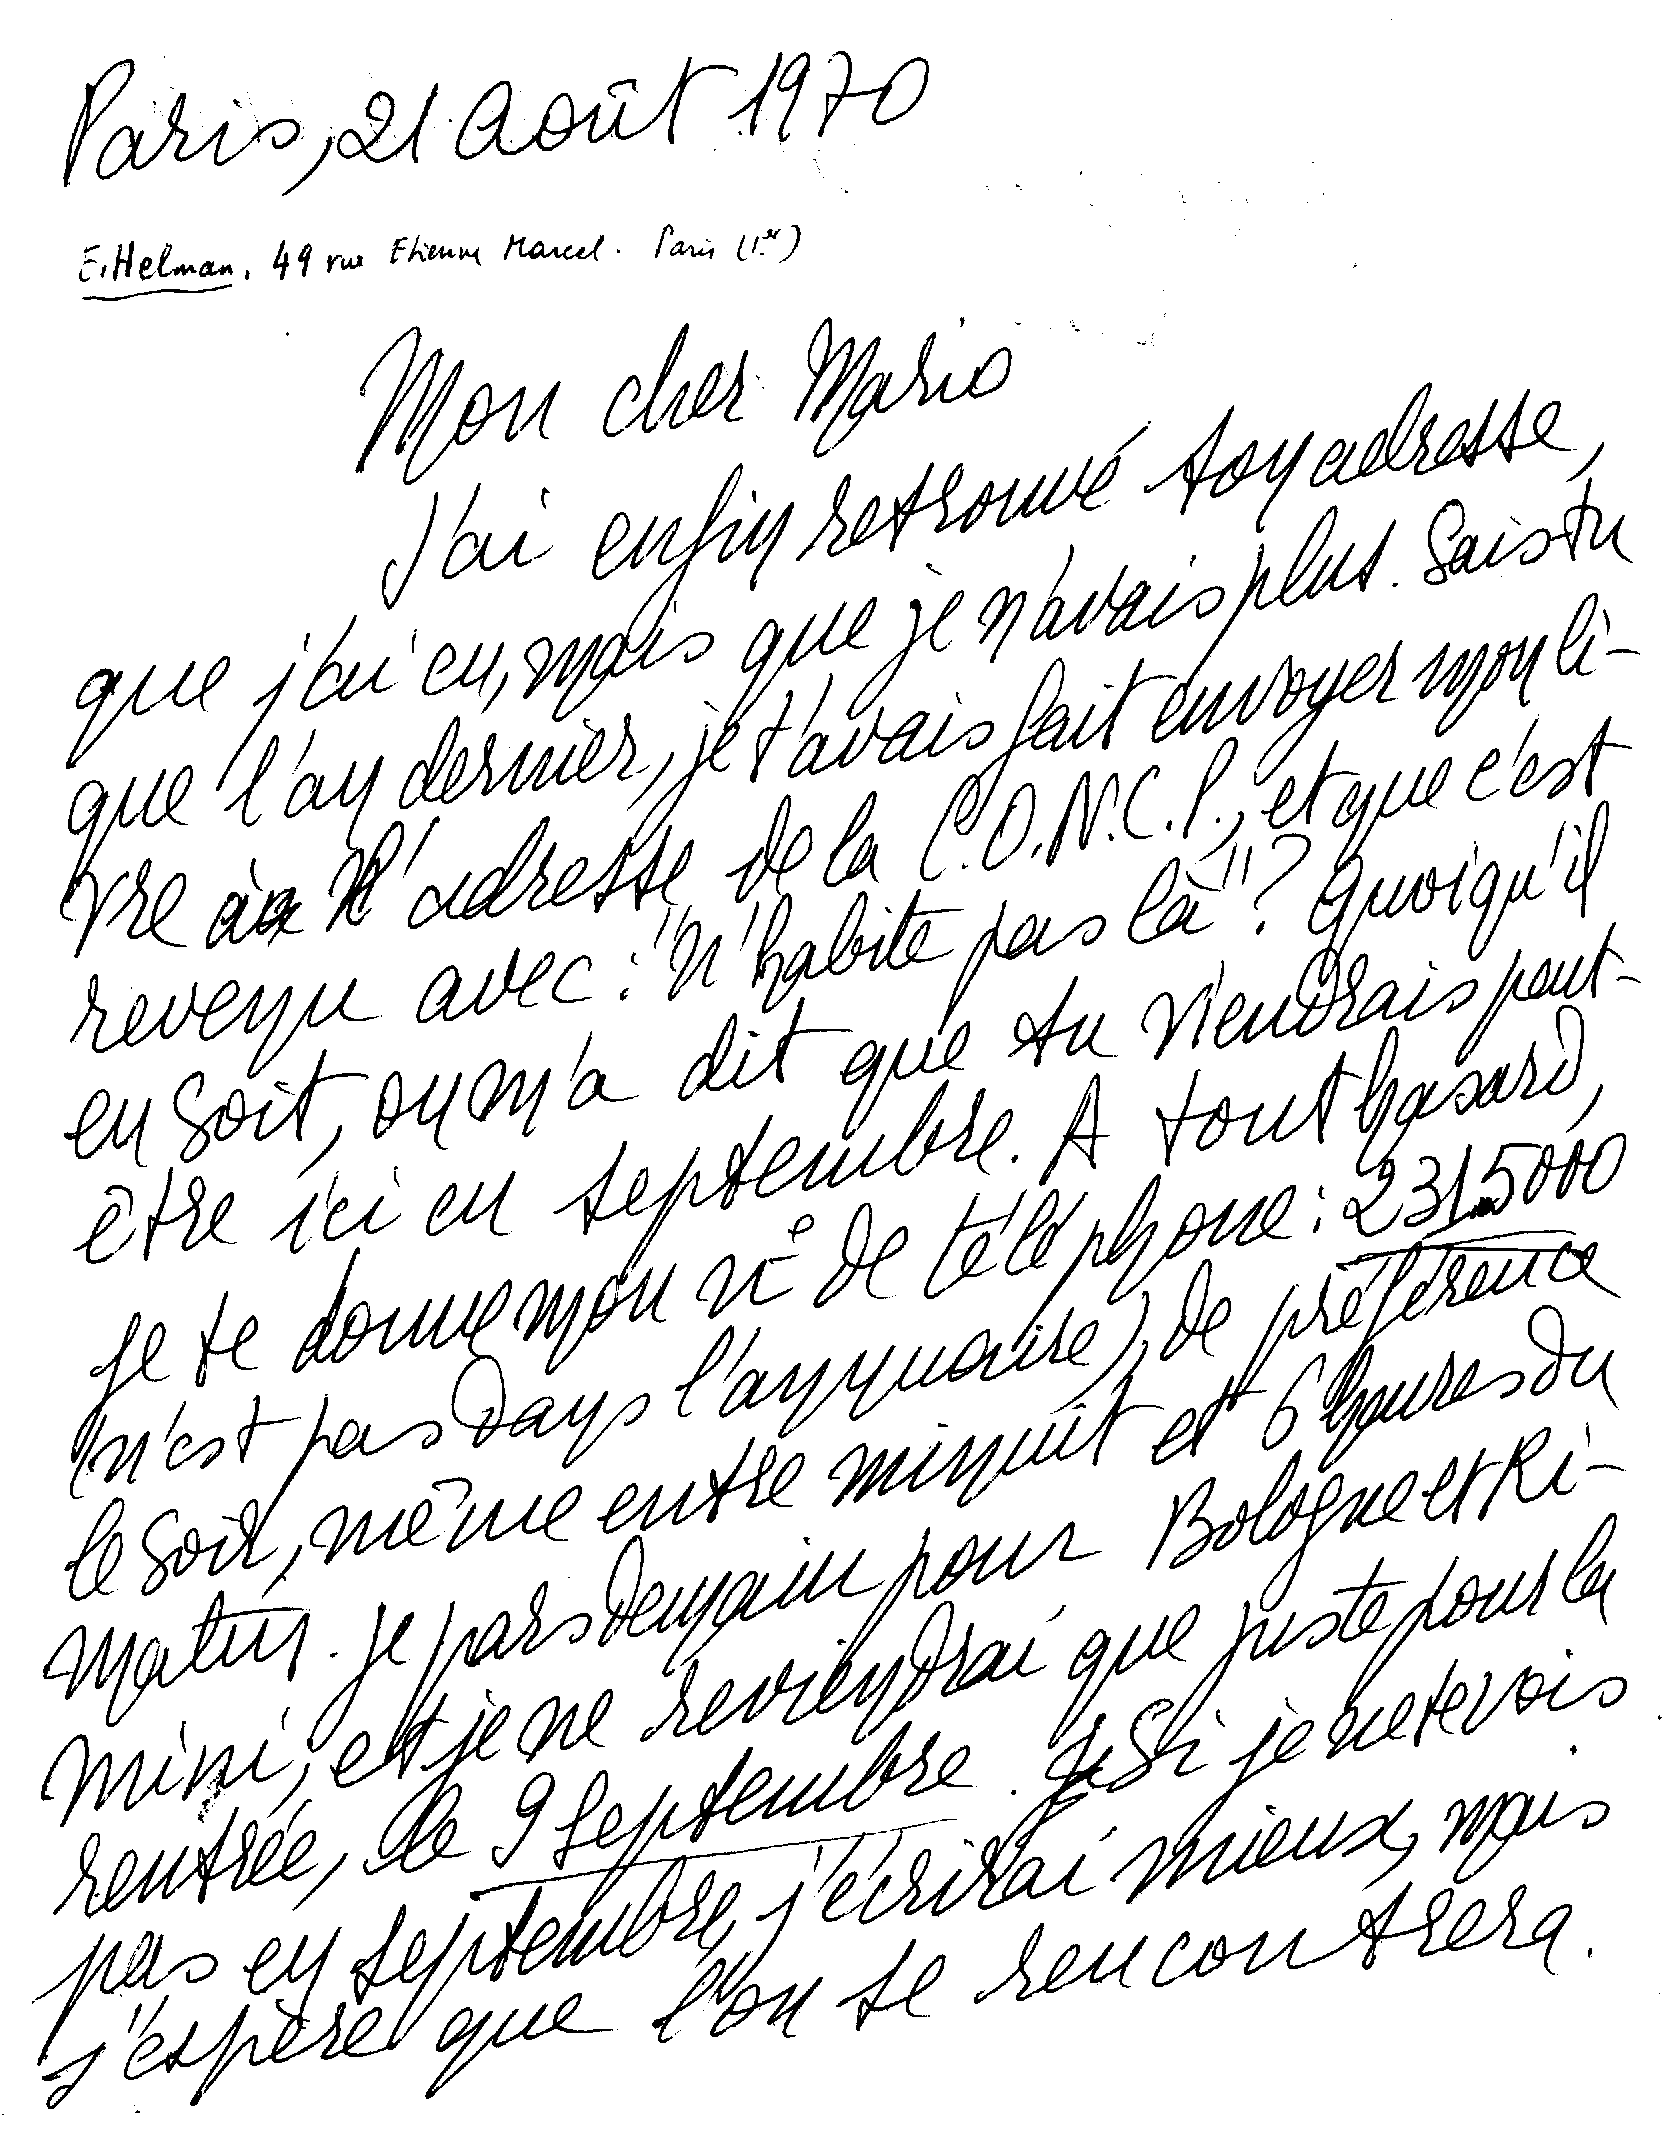 Paris, 21 Août 1970
E. Helman. 49 rue Etienne Marcel. Paris (1er)
Mon cher Mario
J'ai enfin retrouvé ton adresse,
que j'ai eu, mais que je n'avais plus. Sais tu
que l'an dernier, je t'avais fait envoyer mon li-
vre à l'adresse de la C.O.N.C.P., et que c'est
revenu avec : "N'habite pas là" ? Quoiqu'il
en soit, on m'a dit que tu viendrais peut-
être ici en septembre. A tout hasard,
je te donne mon n° de téléphone : 231.5000
(n'est pas dans l'annuaire), de préférence
le soir, même entre minuit et 6 heures du
matin. je pars demain pour Bologne et Ri-
mini, et je ne reviendrai que juste pour la
rentrée, le 9 Septembre. Si je ne te vois
pas en septembre, j'écrirai mieux, mais
j'espère que l'on se rencontrera.